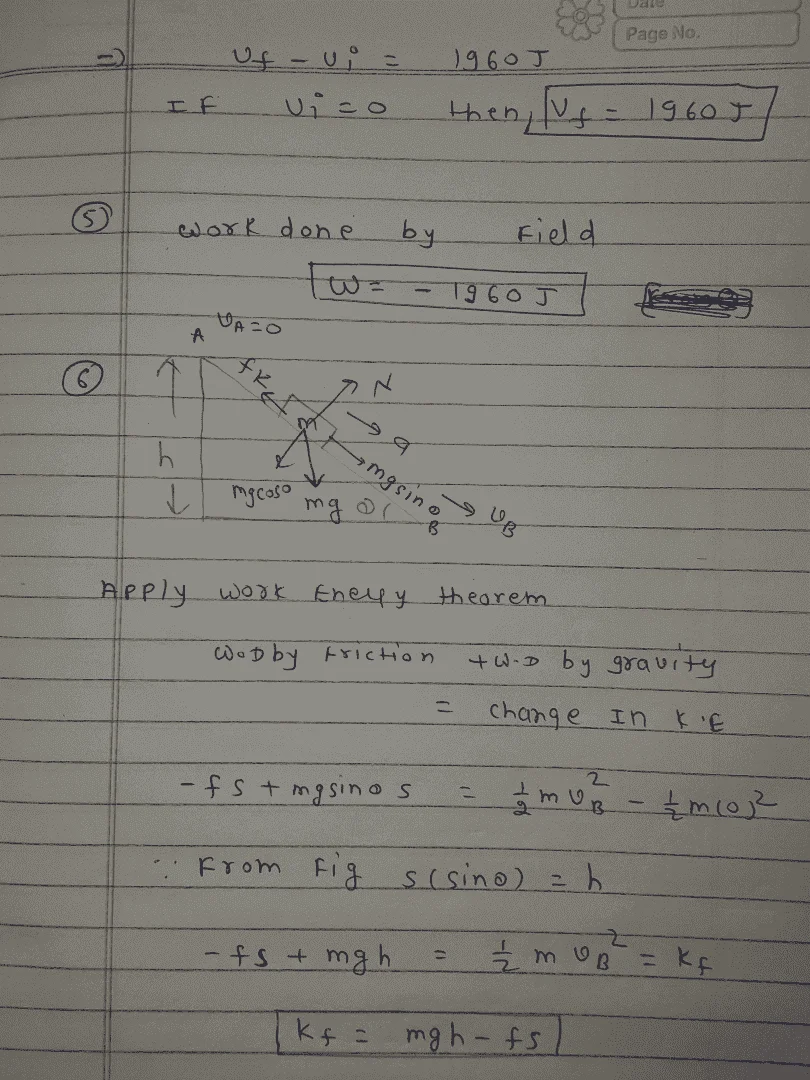 Date
Page No.
=) Uf - Ui = 1960 J
IF Ui = 0 then, Uf = 1960 J
(5) work done by Field
W = - 1960 J
A vA = 0
(6) fk N
m a
h
mgcosθ mg θ mgsinθ vB
B
Apply work Energy theorem
W.D by Friction + W.D by gravity
= change In K.E
- f s + mgsinθ s = 1/2 m vB² - 1/2 m(0)²
∵ From Fig s(sinθ) = h
- fs + mgh = 1/2 m vB² = Kf
Kf = mgh - fs